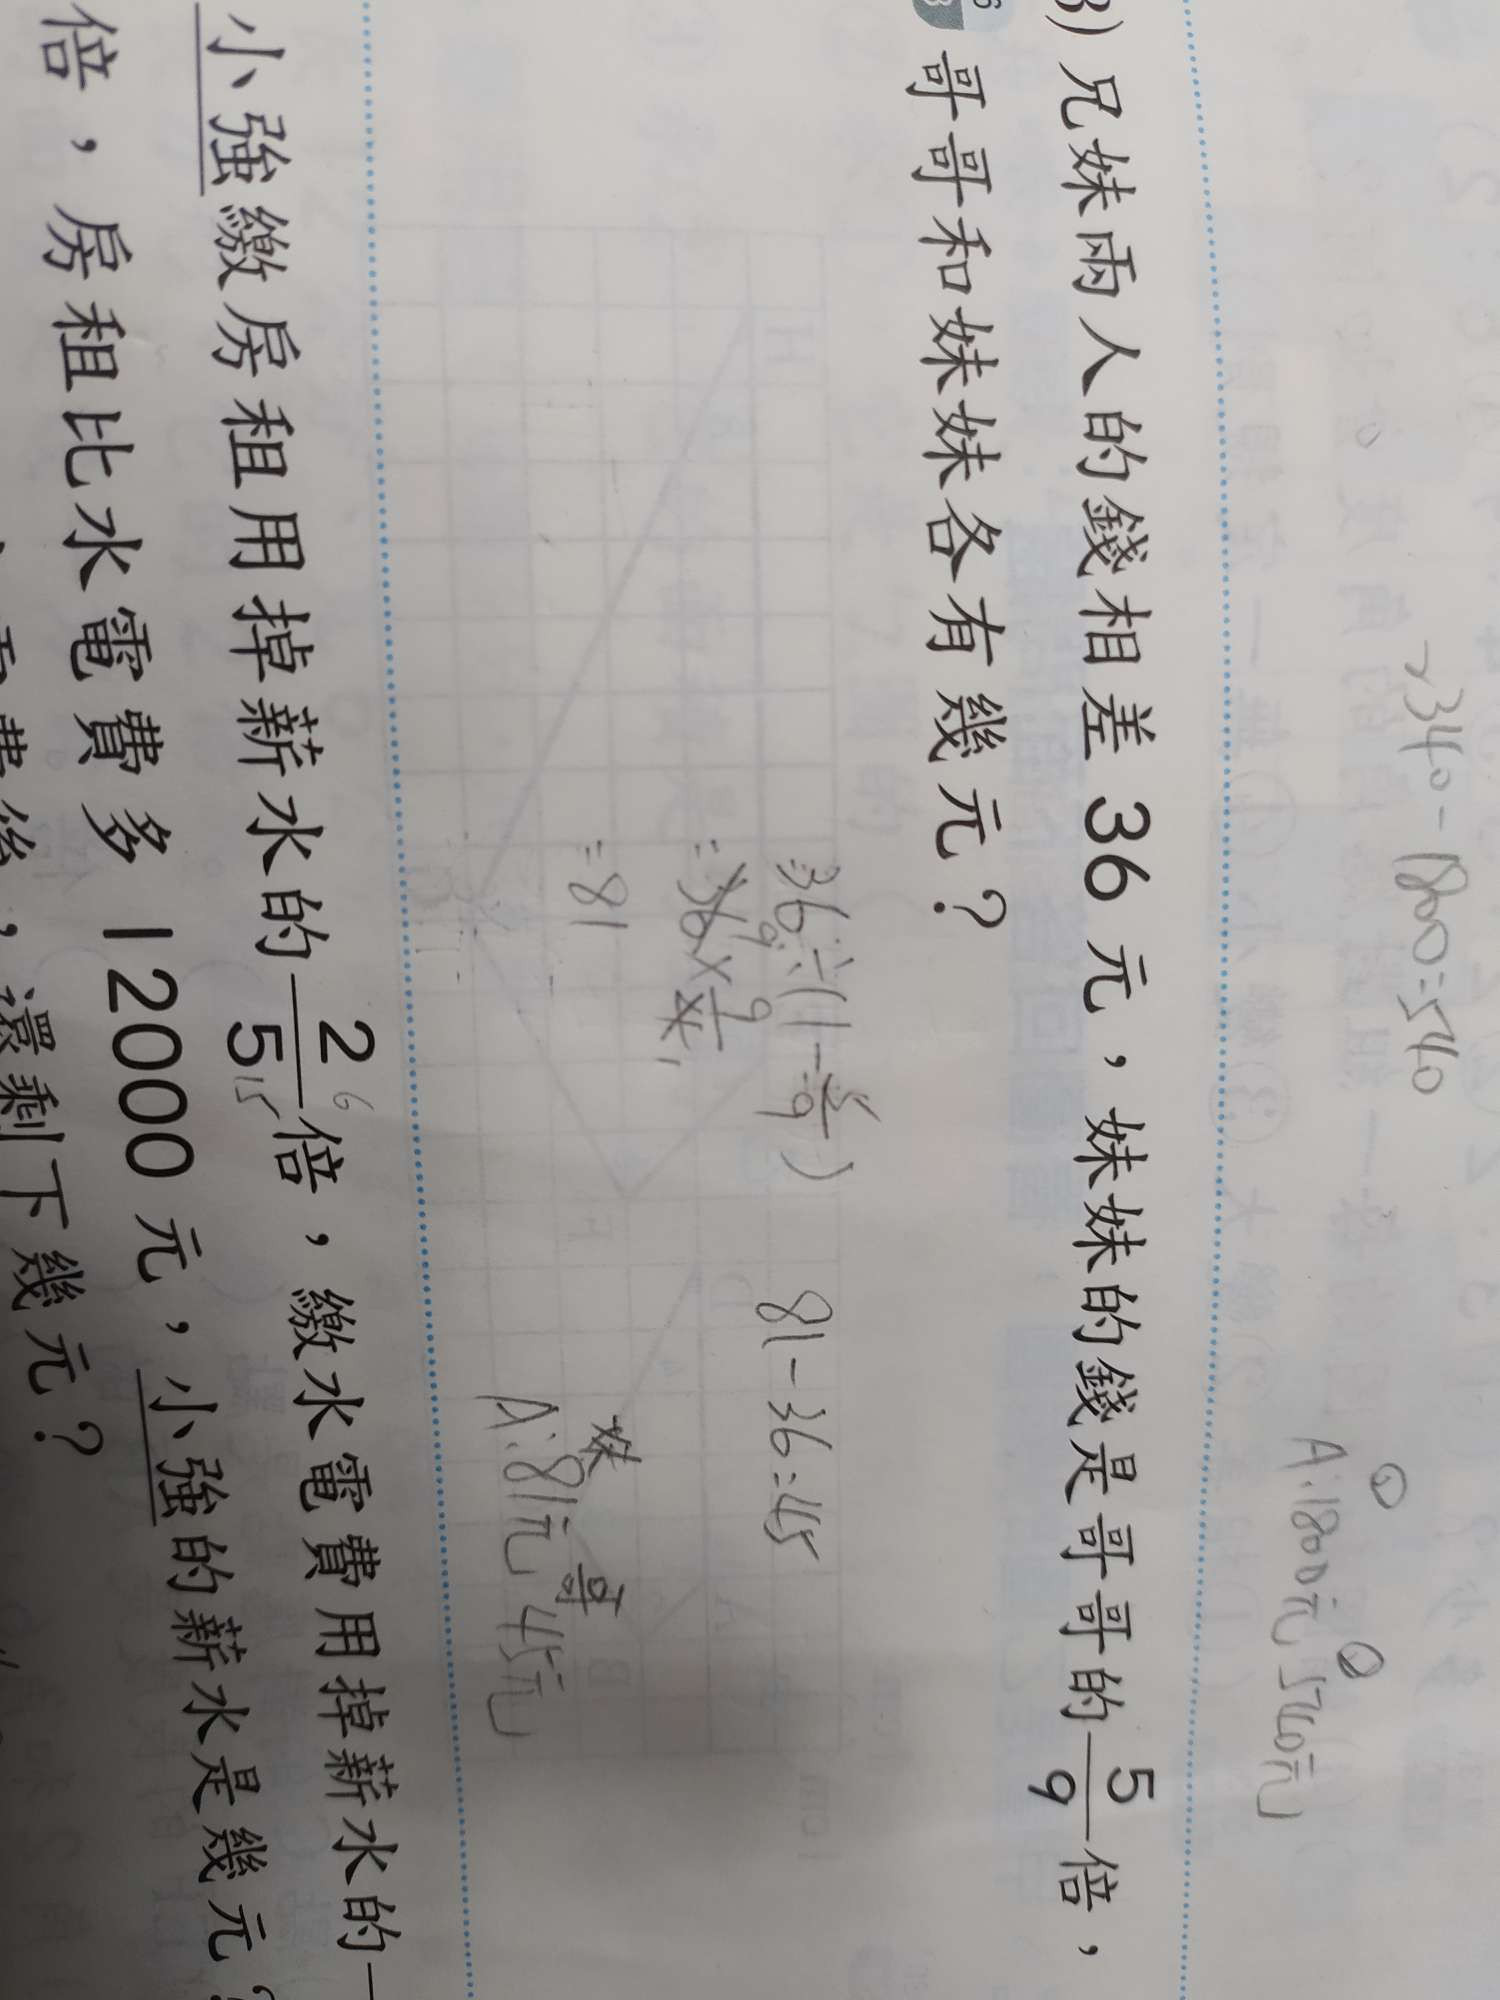 2340-1800=540
A:1800元 540元
① ②
3) 兄妹兩人的錢相差 36 元，妹妹的錢是哥哥的 5/9 倍，
哥哥和妹妹各有幾元？
36÷(1-5/9) 81-36=45
=36×9/4
=81
妹 哥
A:81元 45元
小強繳房租用掉薪水的 2/5 倍，繳水電費用掉薪水的
6
15
倍，房租比水電費多 12000 元，小強的薪水是幾元？
費後，還剩下幾元？